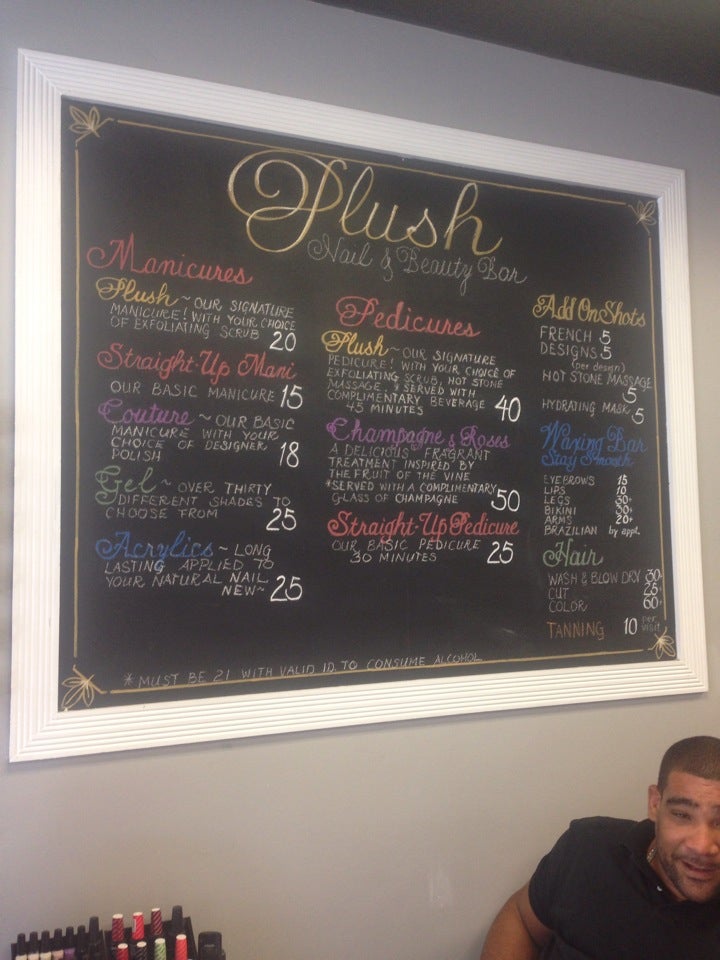 Plush
Nail & Beauty Bar
Manicures
Plush ~ OUR SIGNATURE
MANICURE! WITH YOUR CHOICE
OF EXFOLIATING SCRUB 20
Straight-Up Mani
OUR BASIC MANICURE 15
Couture ~ OUR BASIC
MANICURE WITH YOUR
CHOICE OF DESIGNER
POLISH 18
Gel ~ OVER THIRTY
DIFFERENT SHADES TO
CHOOSE FROM 25
Acrylics ~ LONG
LASTING APPLIED TO
YOUR NATURAL NAIL
NEW~ 25
Pedicures
Plush ~ OUR SIGNATURE
PEDICURE! WITH YOUR CHOICE OF
EXFOLIATING SCRUB, HOT STONE
MASSAGE, & SERVED WITH
COMPLIMENTARY BEVERAGE
45 MINUTES 40
Champagne & Roses
A DELICIOUS FRAGRANT
TREATMENT INSPIRED BY
THE FRUIT OF THE VINE
*SERVED WITH A COMPLIMENTARY
GLASS OF CHAMPAGNE 50
Straight-Up Pedicure
OUR BASIC PEDICURE
30 MINUTES 25
Add On Shots
FRENCH 5
DESIGNS 5
(per design)
HOT STONE MASSAGE
5
HYDRATING MASK 5
Waxing Bar
Stay Smooth
EYEBROWS 15
LIPS 10
LEGS 30+
BIKINI 30+
ARMS 20+
BRAZILIAN by appt.
Hair
WASH & BLOW DRY 30+
CUT 25
COLOR 60+
TANNING 10 per visit
*MUST BE 21 WITH VALID ID TO CONSUME ALCOHOL